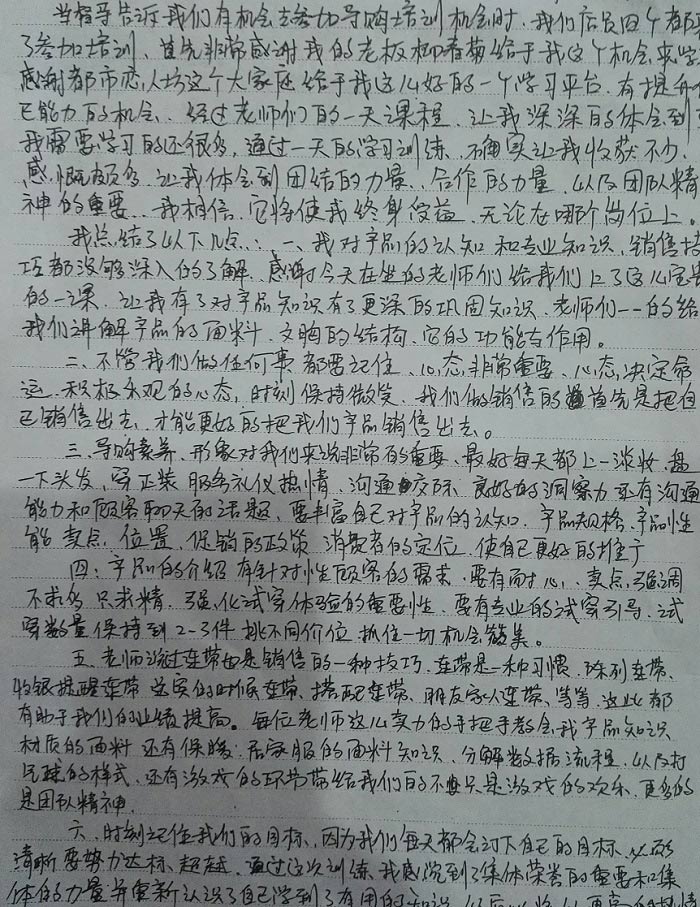 当指导告诉我们有机会去参加导购培训机会时,我们店员四个都
了参加培训,首先非常感谢我的老板 给于我这个机会来学
感谢都市恋人坊这个大家庭给于我这么好的一个学习平台,有提升
己能力的机会。经过老师们的一天课程,让我深深的体会到
我需要学习的还很多,通过一天的学习训练,不确实让我收获不少,
感慨颇多,让我体会到团结的力量、合作的力量,以及团队精
神的重要,我相信,它将使我终身受益,无论在哪个岗位上。
我总结了以下几点:一、我对产品的认知和专业知识,销售技
巧都没够深入的了解,感谢今天在坐的老师们给我们上了这么宝贵
的一课,让我有了对产品知识有了更深的巩固知识,老师们一一的给
我们讲解产品的面料,文胸的结构,它的功能与作用。
二、不管我们做任何事都要记住,心态非常重要,心态决定命
运,积极乐观的心态,时刻保持微笑,我们做销售的首先是把自
己销售出去,才能更好的把我们产品销售出去。
三、导购素养,形象对我们来说非常的重要,最好每天都上一淡妆,盘
一下头发,穿正装,服务礼仪热情,沟通交际,良好的洞察力还有沟通
能力和顾客聊天的话题,要丰富自己对产品的认知,产品规格,产品性
能,卖点,位置,促销的政策,消费者的定位,使自己更好的推广
四、产品的介绍,有针对性顾客的需求,要有耐心,卖点,强调
不求多,只求精,强化试穿体验的重要性,要有专业的试穿引导,试
穿数量保持到2-3件,挑不同价位,抓住一切机会赞美。
五、老师说过连带也是销售的一种技巧,连带是一种习惯,陈列连带,
收银提醒连带,买的时候连带,搭配连带,朋友家人连带,等等,这些都
有助于我们的业绩提高。每位老师这么卖力的手把手教会我产品知识
材质的面料,还有保暖,居家服的面料知识,分解数据流程,以及打
的样式,还有游戏的环节带给我们的不只是游戏的欢乐,更多的
是团队精神。
六、时刻记住我们的目标,因为我们每天都会订下自己的目标,
清晰要努力达标,超越,通过这次训练,我感觉到了集体荣誉的重要和集
体的力量,并重新认识了自己学到了有用的知识,以后